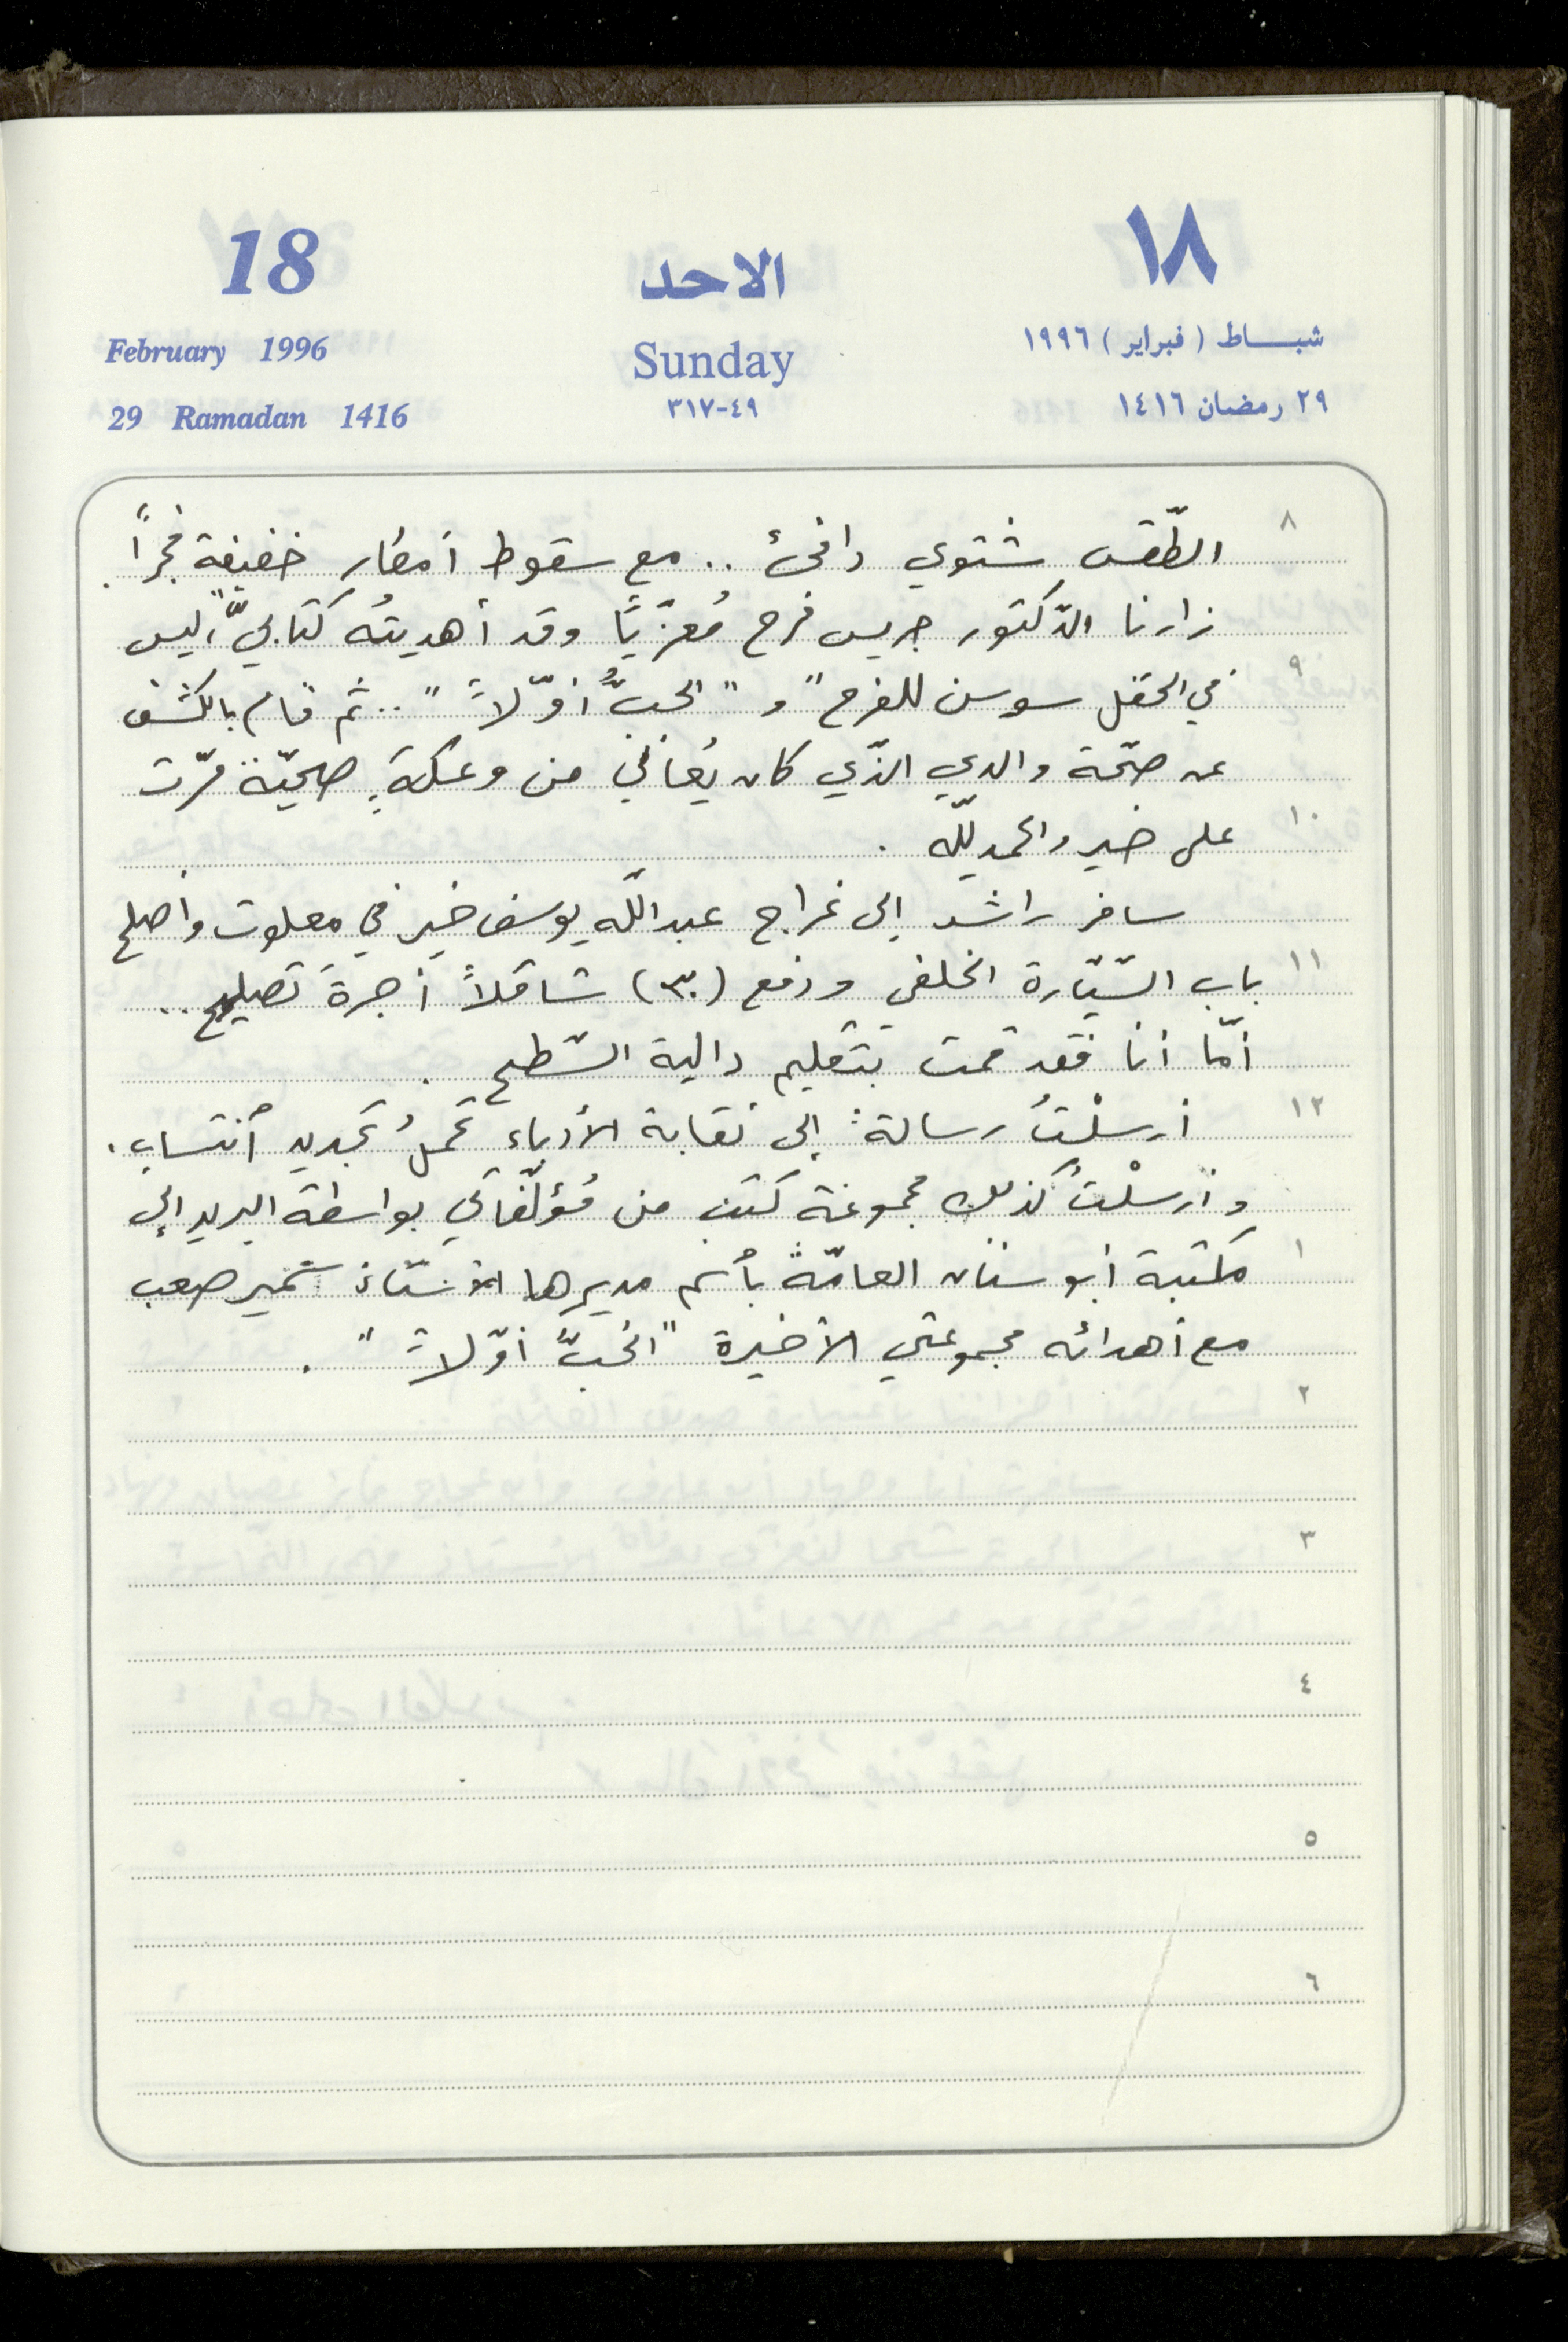 18 الاحد ١٨
February 1996 Sunday شبـــاط (فبراير) ١٩٩٦
29 Ramadan 1416 ٤٩-٣١٧ ٢٩ رمضان ١٤١٦
٨ الطّقس شتوي دافئ .. مع سقوط أمطار خفيفة فجراً.
زارنا الدّكتور جريس فرح مُعزّيًا وقد أهديتُه كتابيّ "ليس
٩ في الحقل سوسن للفرح" و "الحبُّ أوّلاً" .. ثم قام بالكشف
عن صحّة والدي الذّي كان يُعاني من وعكةٍ صحيّة مرّت
١٠ على خير والحمد للّه .
سافر راشد إلى غراج عبد اللّه يوسف خير في معلوت وأصلح
١١ باب السّيّارة الخلفي ودفع (٣٠) شاقلاً أجرة تصليح ..
أمّا أنا فقد قمت بتقليم دالية السّطح .
١٢ أرسلْتُ رسالة إلى نقابة الأدباء تحملُ تجديد أنتساب .
وأرسلْتُ كذلك مجموعة كتب من مُؤلّفاتي بواسطة البريد إلى
١ مكتبة أبو سنان العامّة بأسم مديرها الأستاذ سمير صعب
مع أهدائه مجموعتي الأخيرة "الحُبُّ أوّلاً" .
٢
٣
٤
٥
٦